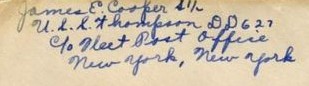 James E. Cooper S1/c
U.S.S. Thompson DD627
C/o Fleet Post Office
New York, New York